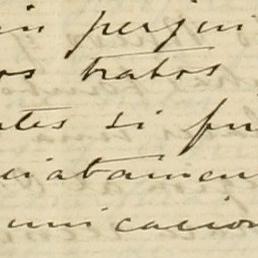 in perjui
os tratos
tes si fu
ciatamen
unicacion